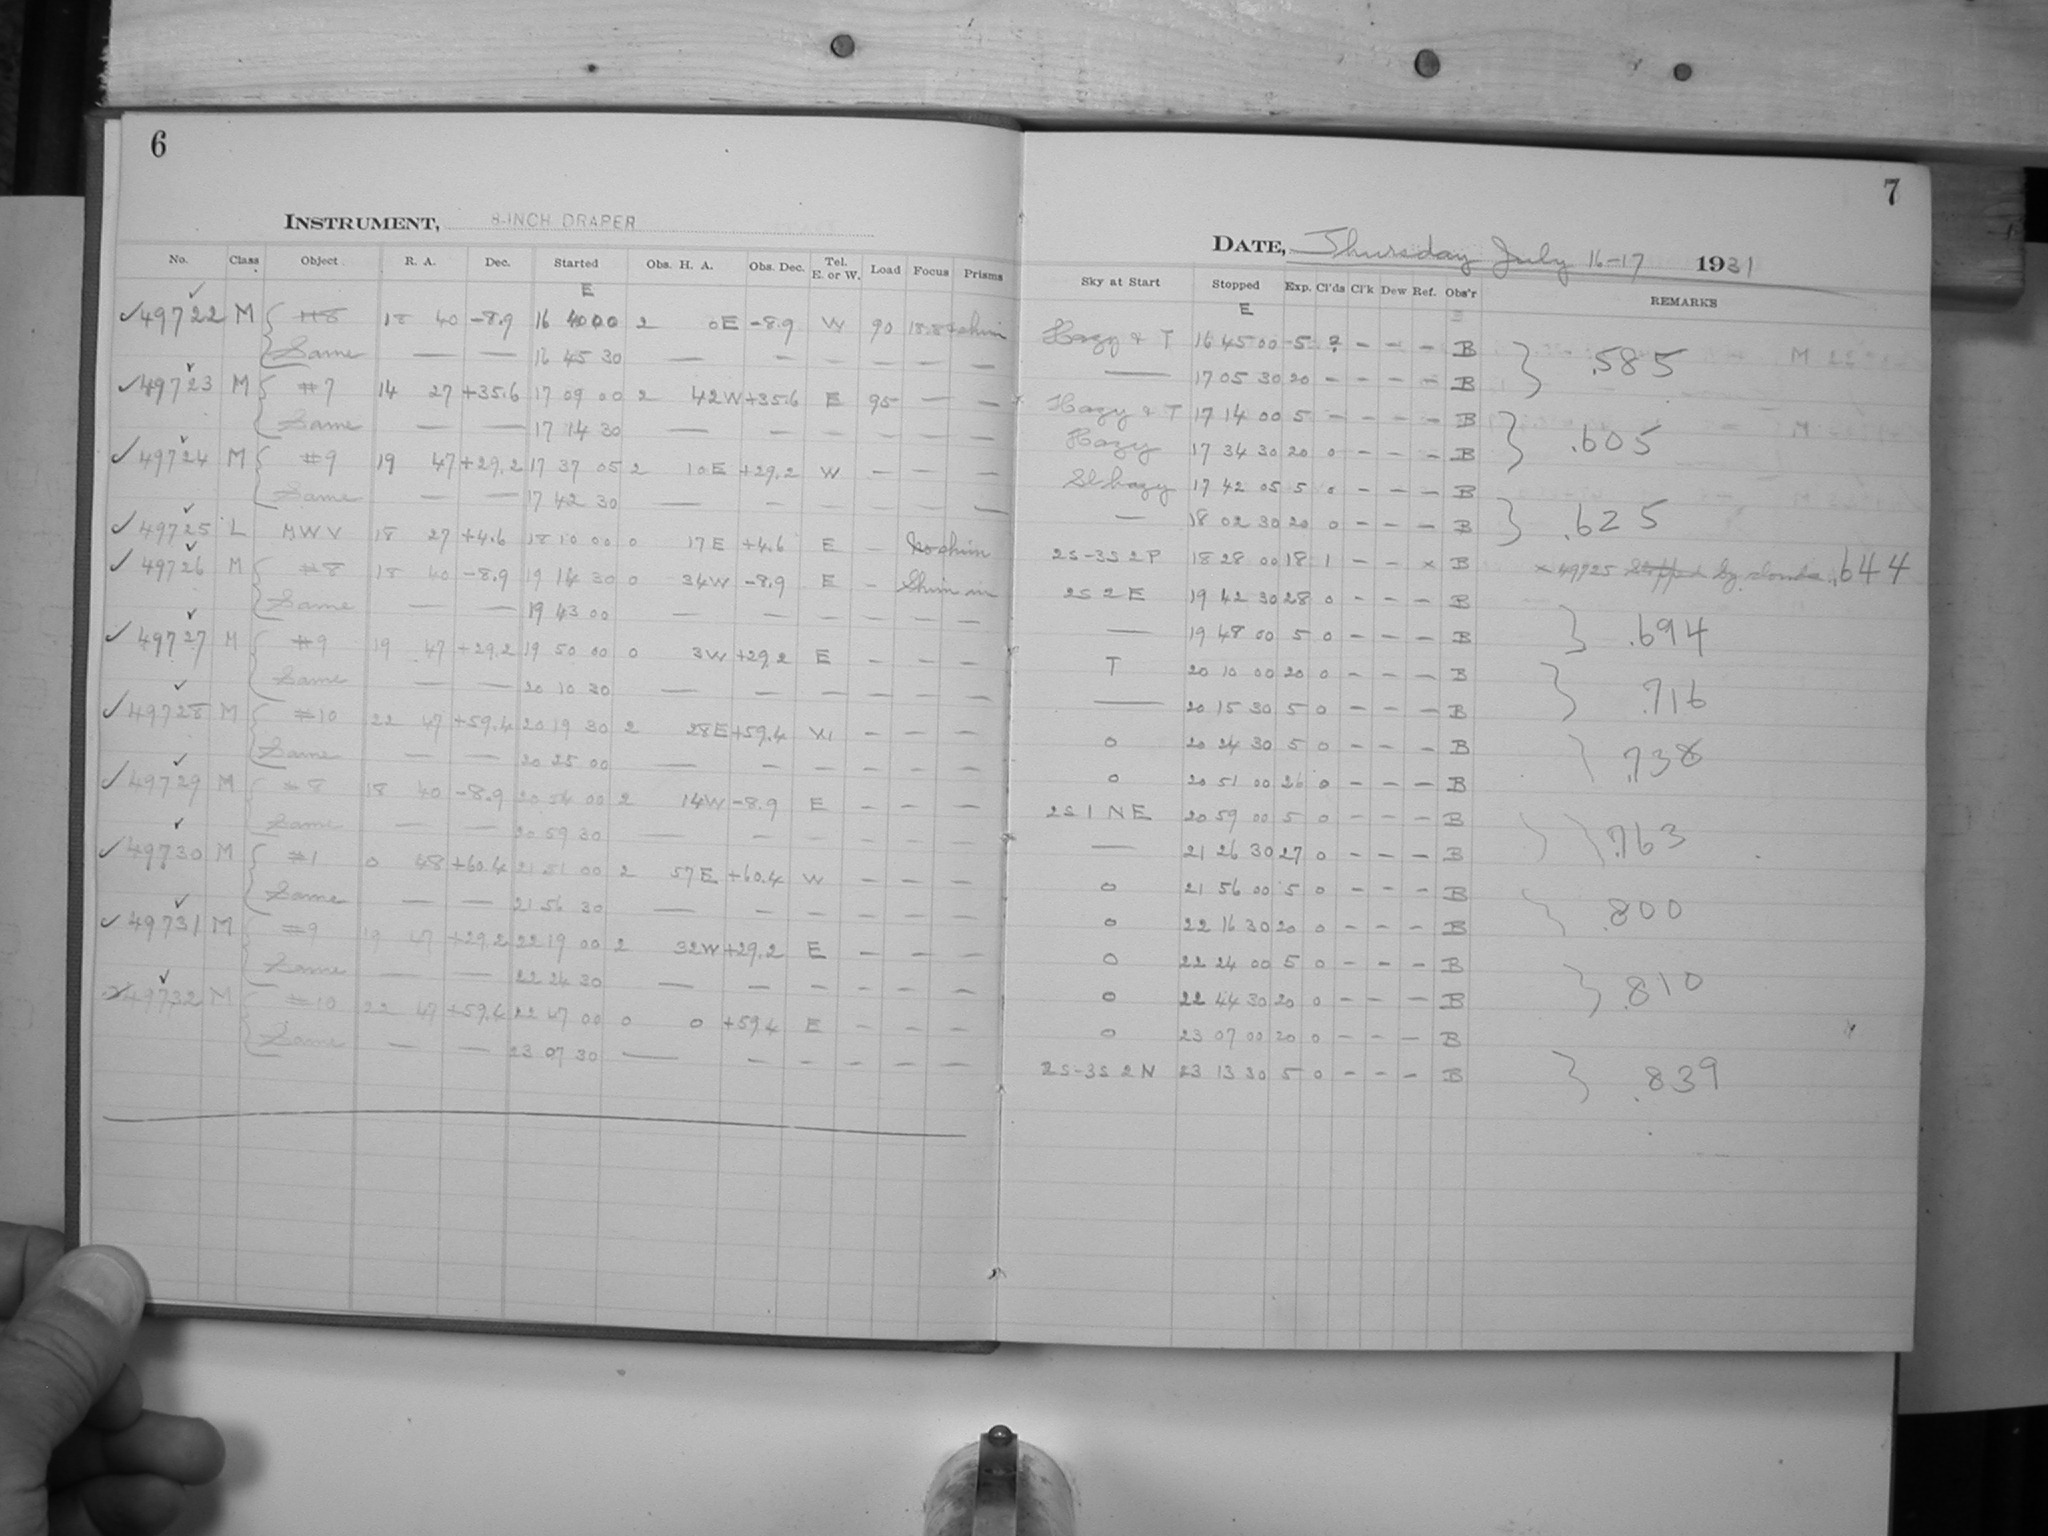 6
INSTRUMENT, 8-INCH DRAPER
No. Class Object R. A. Dec. Started Obs. H. A. Obs. Dec. Tel. E. or W. Load Focus Prisms
E
49722 M #8 18 40 -8.9 16 40 00 2 0E -8.9 W 90
Same — — 16 45 30 — — — — — —
49723 M #7 14 27 +35.6 17 09 00 2 42W +35.6 E 95 — —
Same — — 17 14 30 — — — — — —
49724 M #9 19 47 +29.2 17 37 05 2 10E +29.2 W — — —
Same — — 17 42 30 — — — — — —
49725 L MWV 18 27 +4.6 18 10 00 0 17E +4.6 E — No shim
49726 M #8 18 40 -8.9 19 14 30 0 34W -8.9 E — Shim in
Same — — 19 43 00 — — — — — —
49727 M #9 19 47 +29.2 19 50 00 0 3W +29.2 E — — —
Same — — 20 10 30 — — — — — —
49728 M #10 22 47 +59.4 20 19 30 2 28E +59.4 W — — —
Same — — 20 25 00 — — — — — —
49729 M #8 18 40 -8.9 20 54 00 2 14W -8.9 E — — —
Same — — 20 59 30 — — — — — —
49730 M #1 0 48 +60.4 21 51 00 2 57E +60.4 W — — —
Same — — 21 56 30 — — — — — —
49731 M #9 19 47 +29.2 22 19 00 2 32W +29.2 E — — —
Same — — 22 24 30 — — — — — —
49732 M #10 22 47 +59.4 22 47 00 0 0 +59.4 E — — —
Same — — 23 07 30 — — — — — —
7
DATE, Thursday July 16-17 1931
Sky at Start Stopped Exp. Cl'ds Cl'k Dew Ref. Obs'r REMARKS
E
Hazy & T 16 45 00 5 ? — — — B
— 17 05 30 20 — — — — B .585
Hazy & T 17 14 00 5 — — — — B
Hazy 17 34 30 20 0 — — — B .605
Sl hazy 17 42 05 5 0 — — — B
— 18 02 30 20 0 — — — B .625
2S-3S 2P 18 28 00 18 1 — — x B x 49725 Stopped by clouds .644
2S 2 E 19 42 30 28 0 — — — B
— 19 48 00 5 0 — — — B .694
T 20 10 00 20 0 — — — B
— 20 15 30 5 0 — — — B .716
0 20 24 30 5 0 — — — B
0 20 51 00 26 0 — — — B .738
2S 1 NE 20 59 00 5 0 — — — B
— 21 26 30 27 0 — — — B .763
0 21 56 00 5 0 — — — B
0 22 16 30 20 0 — — — B .800
0 22 24 00 5 0 — — — B
0 22 44 30 20 0 — — — B .810
0 23 07 00 20 0 — — — B
2S-3S 2N 23 13 30 5 0 — — — B .839